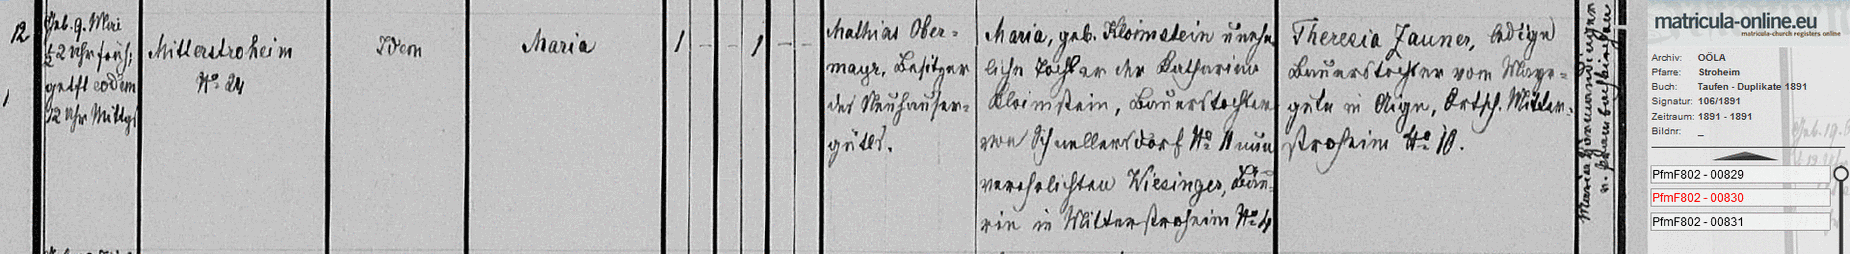 12
Geb. 9. Mai
½2 Uhr früh;
getft eodem
½2 Uhr Mittgs
1
Mitterstroheim
No 24
Idem
Maria
1 - - 1 - -
Mathias Ober-
mayr, Besitzer
des Neuhauser-
gutes.
Maria, geb. Kloimstein unehe
liche Tochter der Katharina
Kloimstein, Bauerstochter
von Schnellersdorf No 11 nun
verehelichten Wiesinger, Bäu-
rin in Mitterstroheim No 4
Theresia Zauner, ledige
Bauerstochter vom Mayr-
gute in Aigen, Ortsch. Mitter-
stroheim No 10.
Maria
v.
matricula-online.eu
matricula-church registers online
Archiv: OÖLA
Pfarre: Stroheim
Buch: Taufen - Duplikate 1891
Signatur: 106/1891
Zeitraum: 1891 - 1891
Bildnr: _
PfmF802 - 00829
PfmF802 - 00830
PfmF802 - 00831